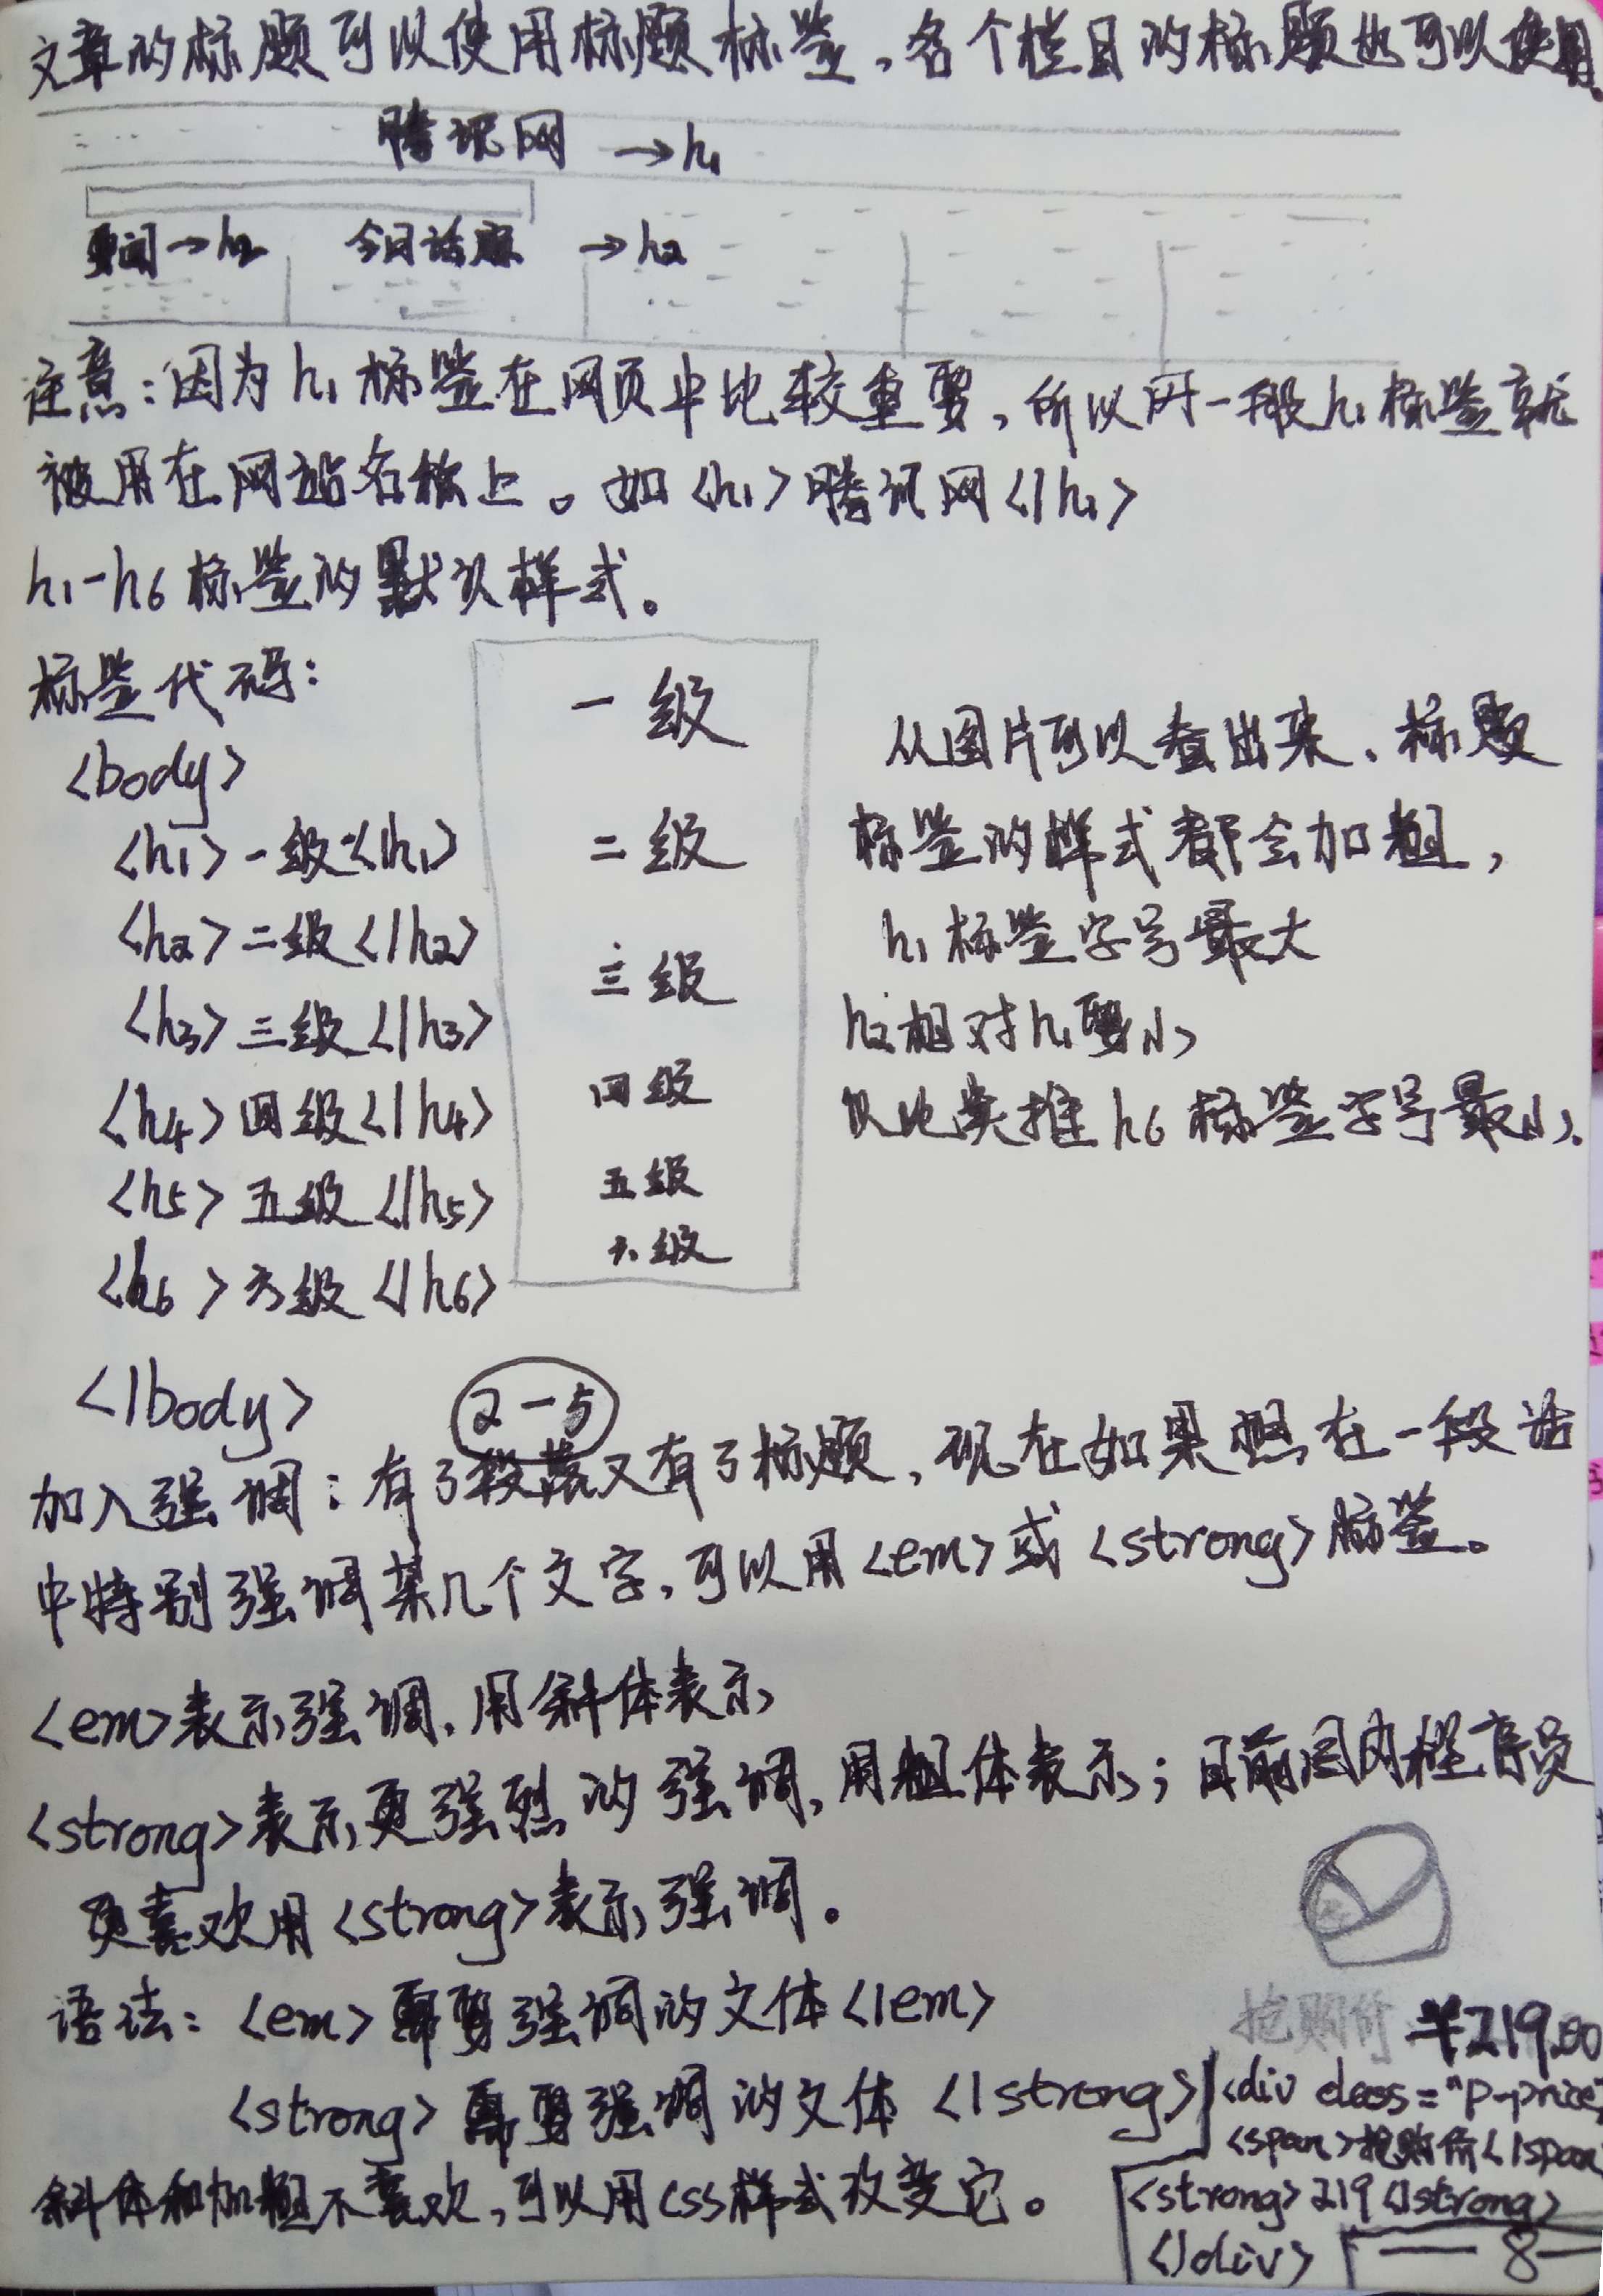 文章的标题可以使用标题标签,各个栏目的标题也可以使用。
腾讯网 →h1
要闻→h2 今日话题 →h2
注意:因为h1标签在网页中比较重要,所以一般h1标签就
被用在网站名称上。如<h1>腾讯网</h1>
h1-h6标签的默认样式。
标签代码:
<body>
<h1>一级</h1>
<h2>二级</h2>
<h3>三级</h3>
<h4>四级</h4>
<h5>五级</h5>
<h6>六级</h6>
</body>
一级
二级
三级
四级
五级
六级
从图片可以看出来、标题
标签的样式都会加粗,
h1标签字号最大
h2相对h1要小
以此类推h6标签字号最小.
2-5
加入强调:有了段落又有了标题,现在如果想在一段话
中特别强调某几个文字,可以用<em>或<strong>标签。
<em>表示强调,用斜体表示
<strong>表示更强烈的强调,用粗体表示;目前国内程序员
更喜欢用<strong>表示强调。
语法:<em>需要强调的文体</em>
<strong>需要强调的文体</strong>
斜体和加粗不喜欢,可以用css样式改变它。
抢购价 ¥219.00
<div class="p-price"
<span>抢购价</span
<strong>219</strong>
</div>
— 8 —